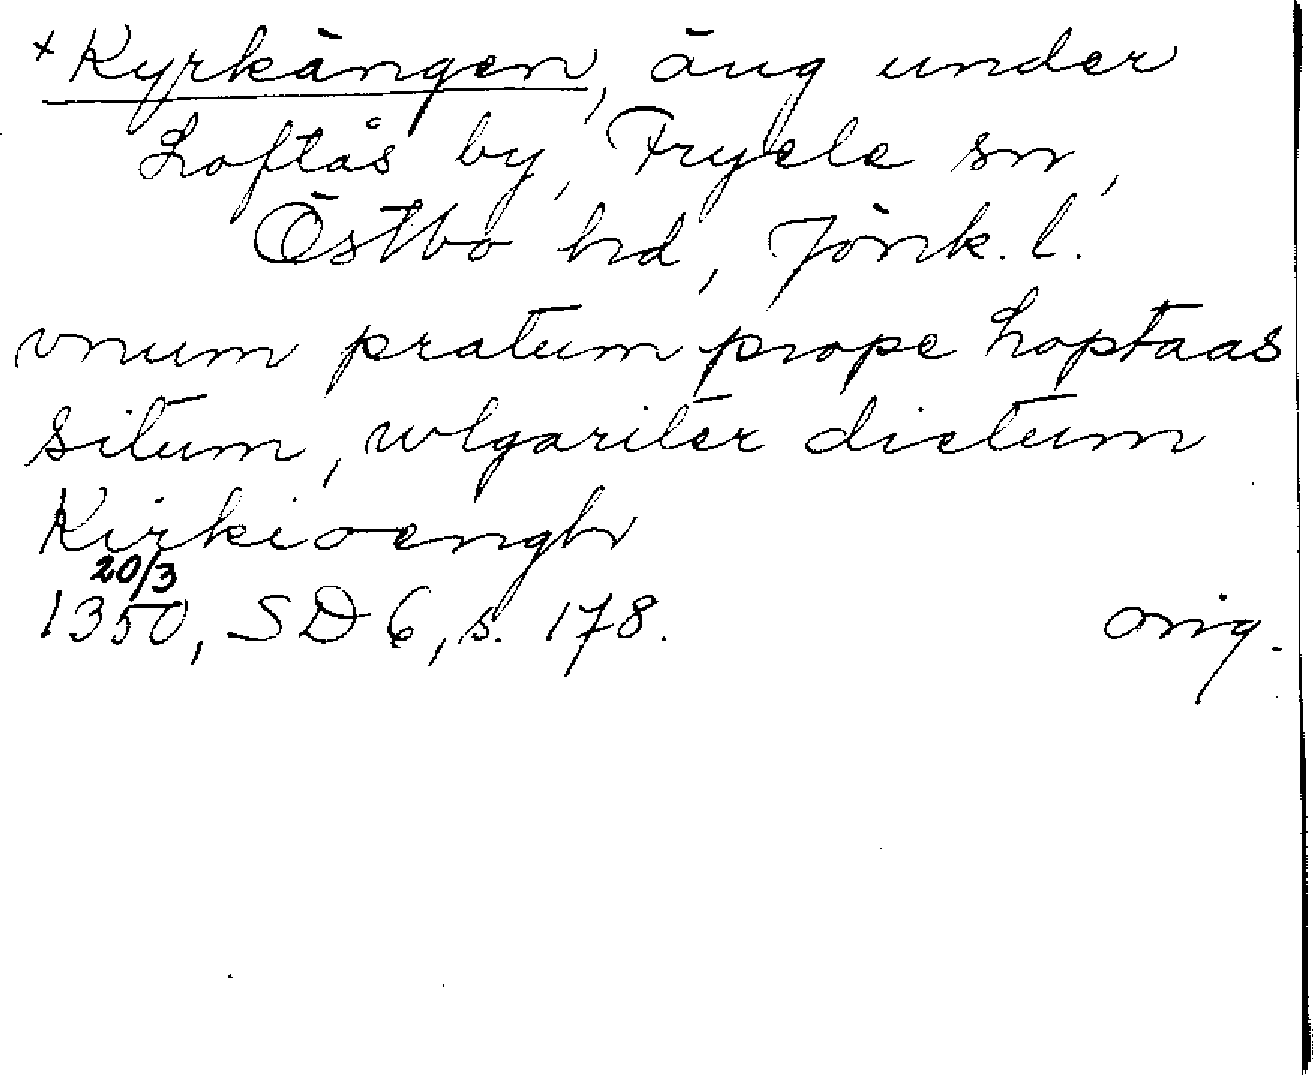 + Kyrkängen, äng under
Loftås by, Fryele sn,
Östbo hd, Jönk. l.
vnum pratum prope Loptaas
situm, wlgariter dictum
Kirkioengh
20/3
1350, SD 6, s. 178. orig.